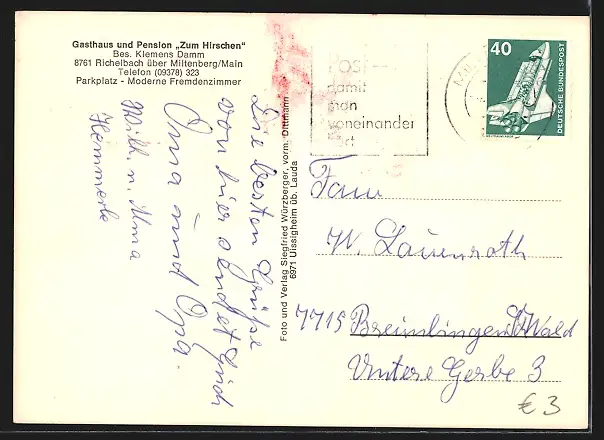 Gasthaus und Pension „Zum Hirschen"
Bes. Klemens Damm
8761 Richelbach über Miltenberg/Main
Telefon (09378) 323
Parkplatz - Moderne Fremdenzimmer
Die besten Grüße
von hier sendet Euch
Oma und Opa.
Willi u. Alma
Hemmerle
Foto und Verlag Siegfried Würzberger, vorm. Dittmann
6971 Uissigheim üb. Lauda
Post---
damit
man
voneinander
hört
40
DEUTSCHE BUNDESPOST
Fam
W. Lauenroth
7715 Bräunlingen/Wald
Untere Gerbe 3
€ 3